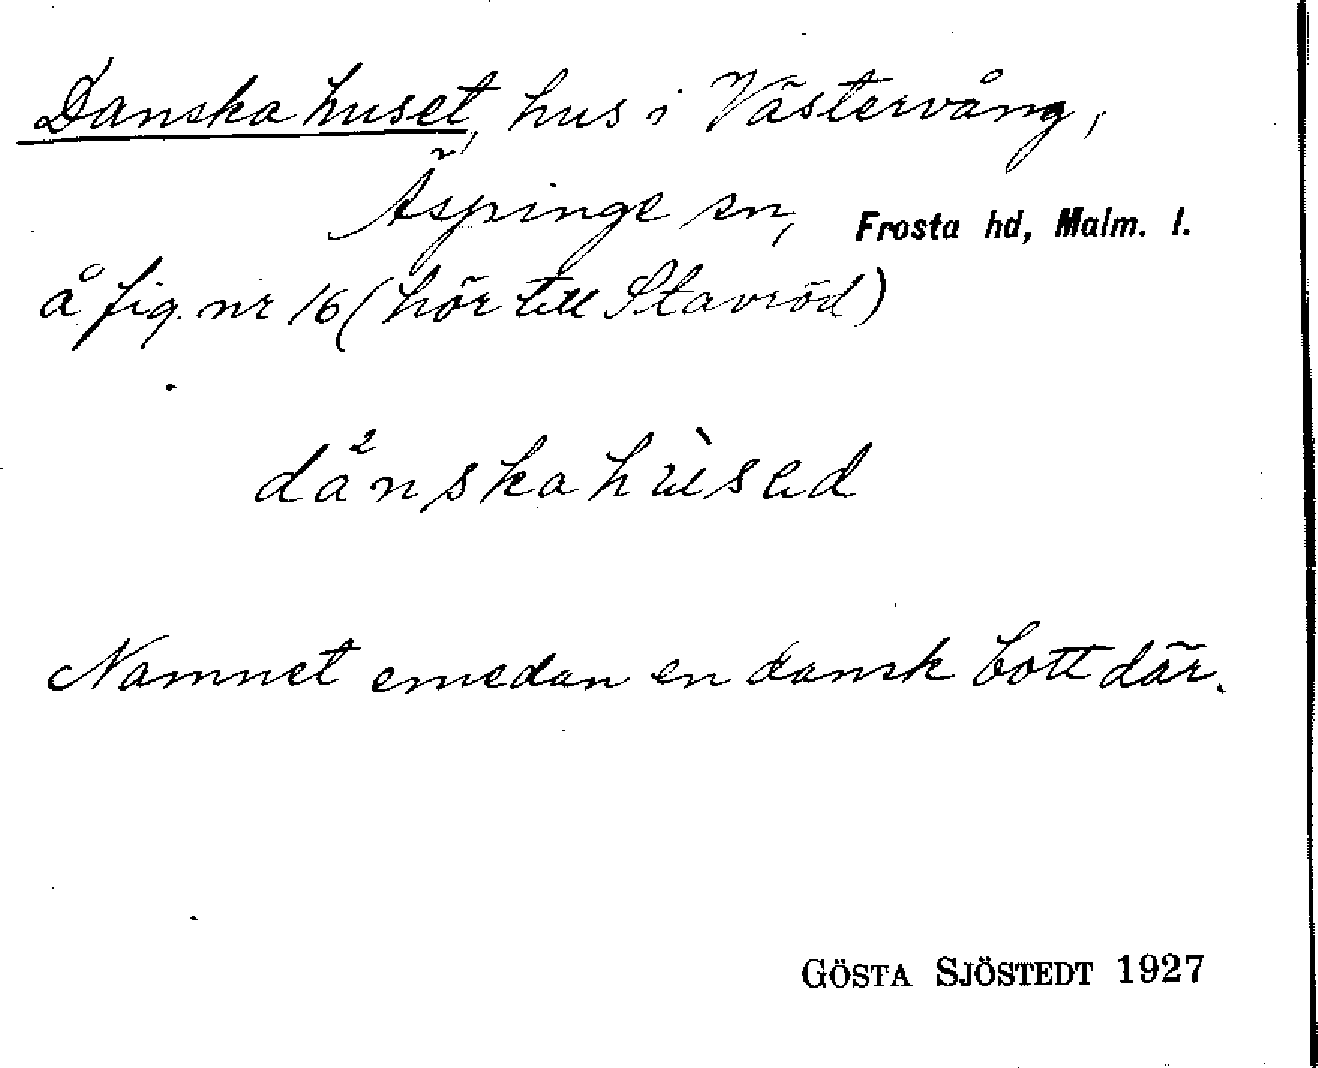 Danska huset, hus i Västervång,
Äspinge sn, Frosta hd, Malm. l.
å fig. nr 16 (hör till Stavröd)
dånskahùsed
Namnet emedan en dansk bott där.
GÖSTA SJÖSTEDT 1927